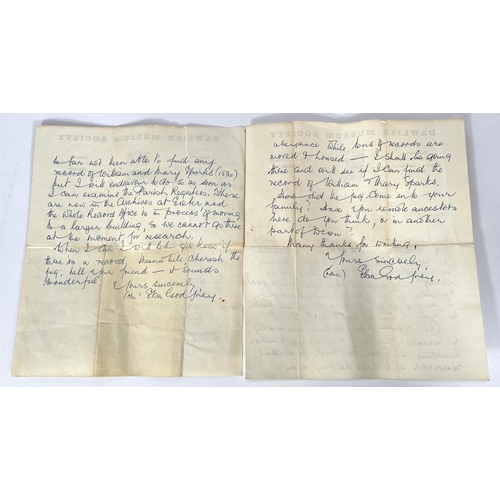 DAWLISH MUSEUM SOCIETY
so far not been able to find any
record of William and Mary Sparks (1830)
but I will endeavour to do so as soon as
I can examine the Parish Registers. These
are now in the Archives at Exeter and
the Whole Record Office is in process of moving
to a larger building, so we cannot go there
at the moment for research.
When I can I will let you know if
there is a record. Meanwhile cherish the
jug, tell your friend — it sounds
wonderful.
Yours sincerely
DAWLISH MUSEUM SOCIETY
abeyance while tons of records are
moved & housed — I shall be going
there and will see if I can find the
record of William & Mary Sparks.
How did the jug come into your
family? Have you remote ancestors
here do you think, or in another
part of Devon?
Many thanks for writing,
Yours sincerely